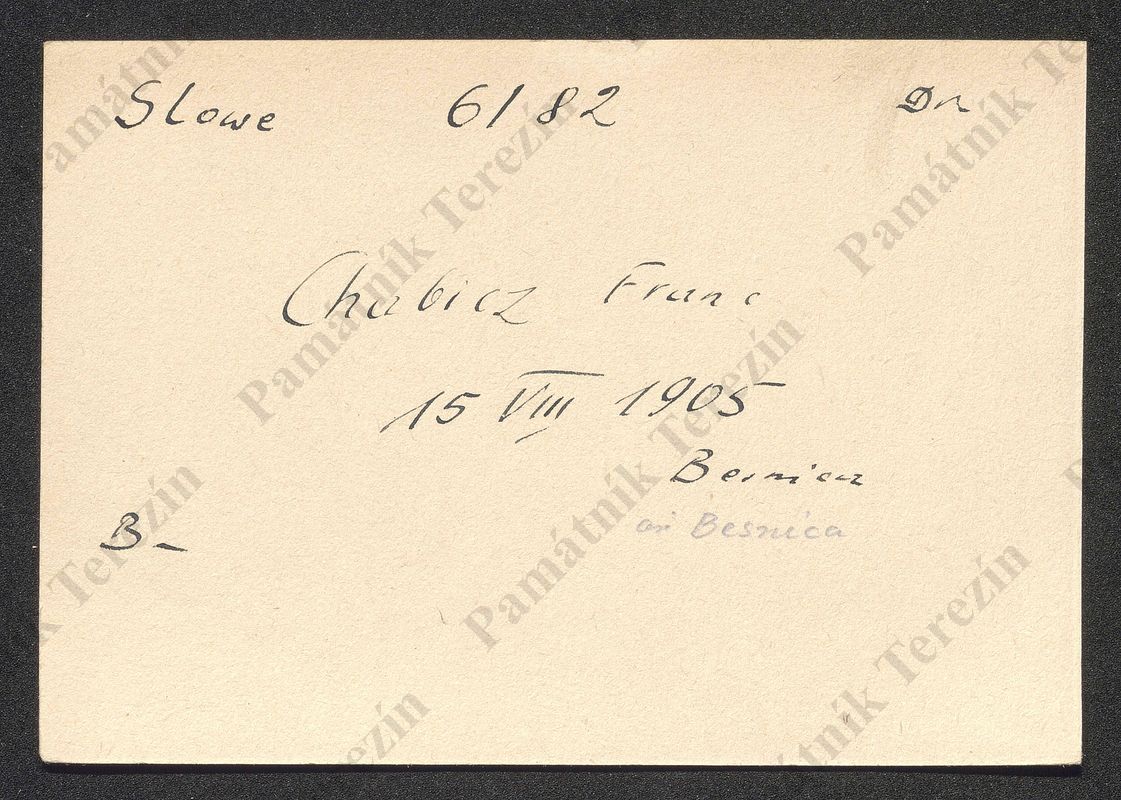 Slowe 6182 Dr
Chabicz Franc
15 VIII 1905
Besnica
asi Besnica
B-
Památník Terezín